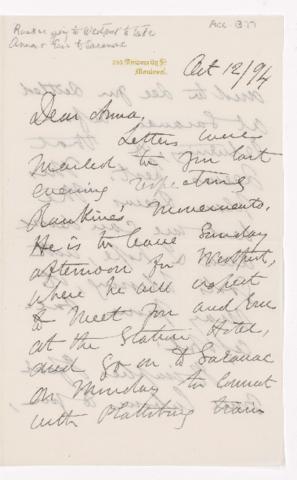 Rankine going to Westport to take
Anna & Eva to Saranac
Acc 877
293 University St
Montreal.
Oct 12/94
Dear Anna,
Letters were
mailed to you last
evening respecting
Rankine's movements.
He is to leave Sunday
afternoon for Westport,
where he will expect
to meet you and Eva
at the Station Hotel,
and go on to Saranac
on Monday to connect
with Plattsburg train